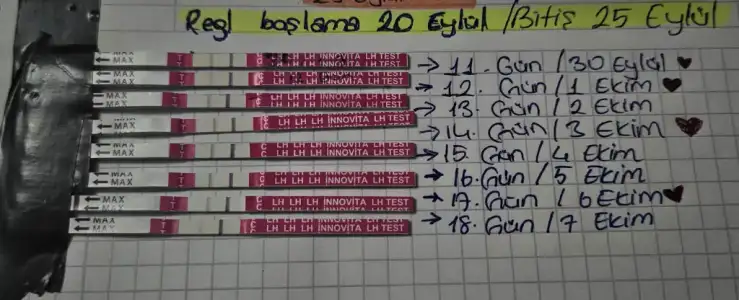 Regl başlama 20 Eylül / Bitiş 25 Eylül
← MAX LH LH INNOVITA LH TEST → 11. Gün / 30 Eylül ♥
← MAX LH LH INNOVITA LH TEST → 12. Gün / 1 Ekim ♥
← MAX LH LH LH INNOVITA LH TEST → 13. Gün / 2 Ekim
← MAX LH LH LH INNOVITA LH TEST → 14. Gün / 3 Ekim ♥
← MAX LH LH LH INNOVITA LH TEST → 15. Gün / 4 Ekim
← MAX LH LH LH INNOVITA LH TEST → 16. Gün / 5 Ekim
← MAX LH LH LH INNOVITA LH TEST → 17. Gün / 6 Ekim ♥
← MAX LH LH LH INNOVITA LH TEST → 18. Gün / 7 Ekim